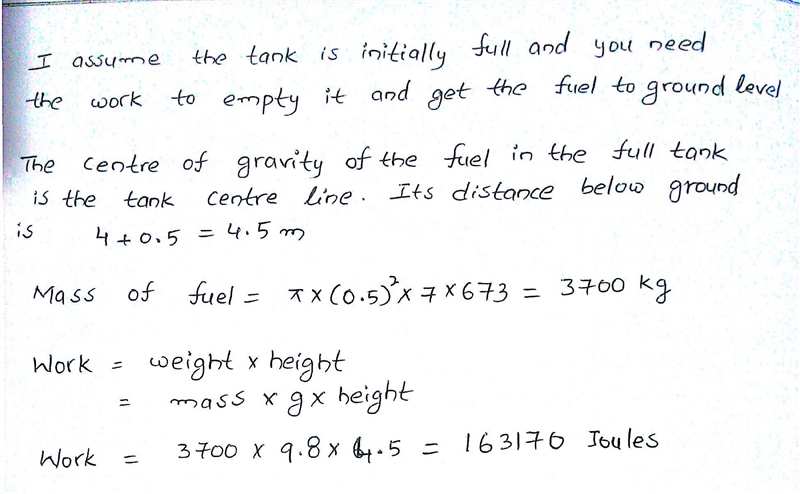 I assume the tank is initially full and you need
the work to empty it and get the fuel to ground level
The centre of gravity of the fuel in the full tank
is the tank centre line. Its distance below ground
is 4 + 0.5 = 4.5 m
Mass of fuel = π x (0.5)² x 7 x 673 = 3700 kg
Work = weight x height
= mass x g x height
Work = 3700 x 9.8 x 4.5 = 163170 Joules